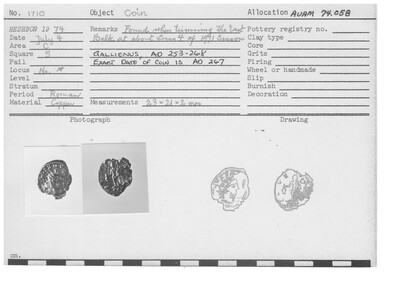 No. 1710 Object Coin Allocation AUAM 74.058
HESHBON 19 74 Remarks Found when trimming the East Pottery registry no.
Date July 4 Balk at about Locus 4 of 1971 Season Clay type
Area C Core
Square 5 GALLIENUS, AD 253-268 Grits
Pail EXACT DATE OF COIN IS AD 267 Firing
Locus Wheel or handmade
Level Slip
Stratum Burnish
Period Roman Decoration
Material Copper Measurements 23 × 21 × 2 mm
Photograph Drawing
cm.